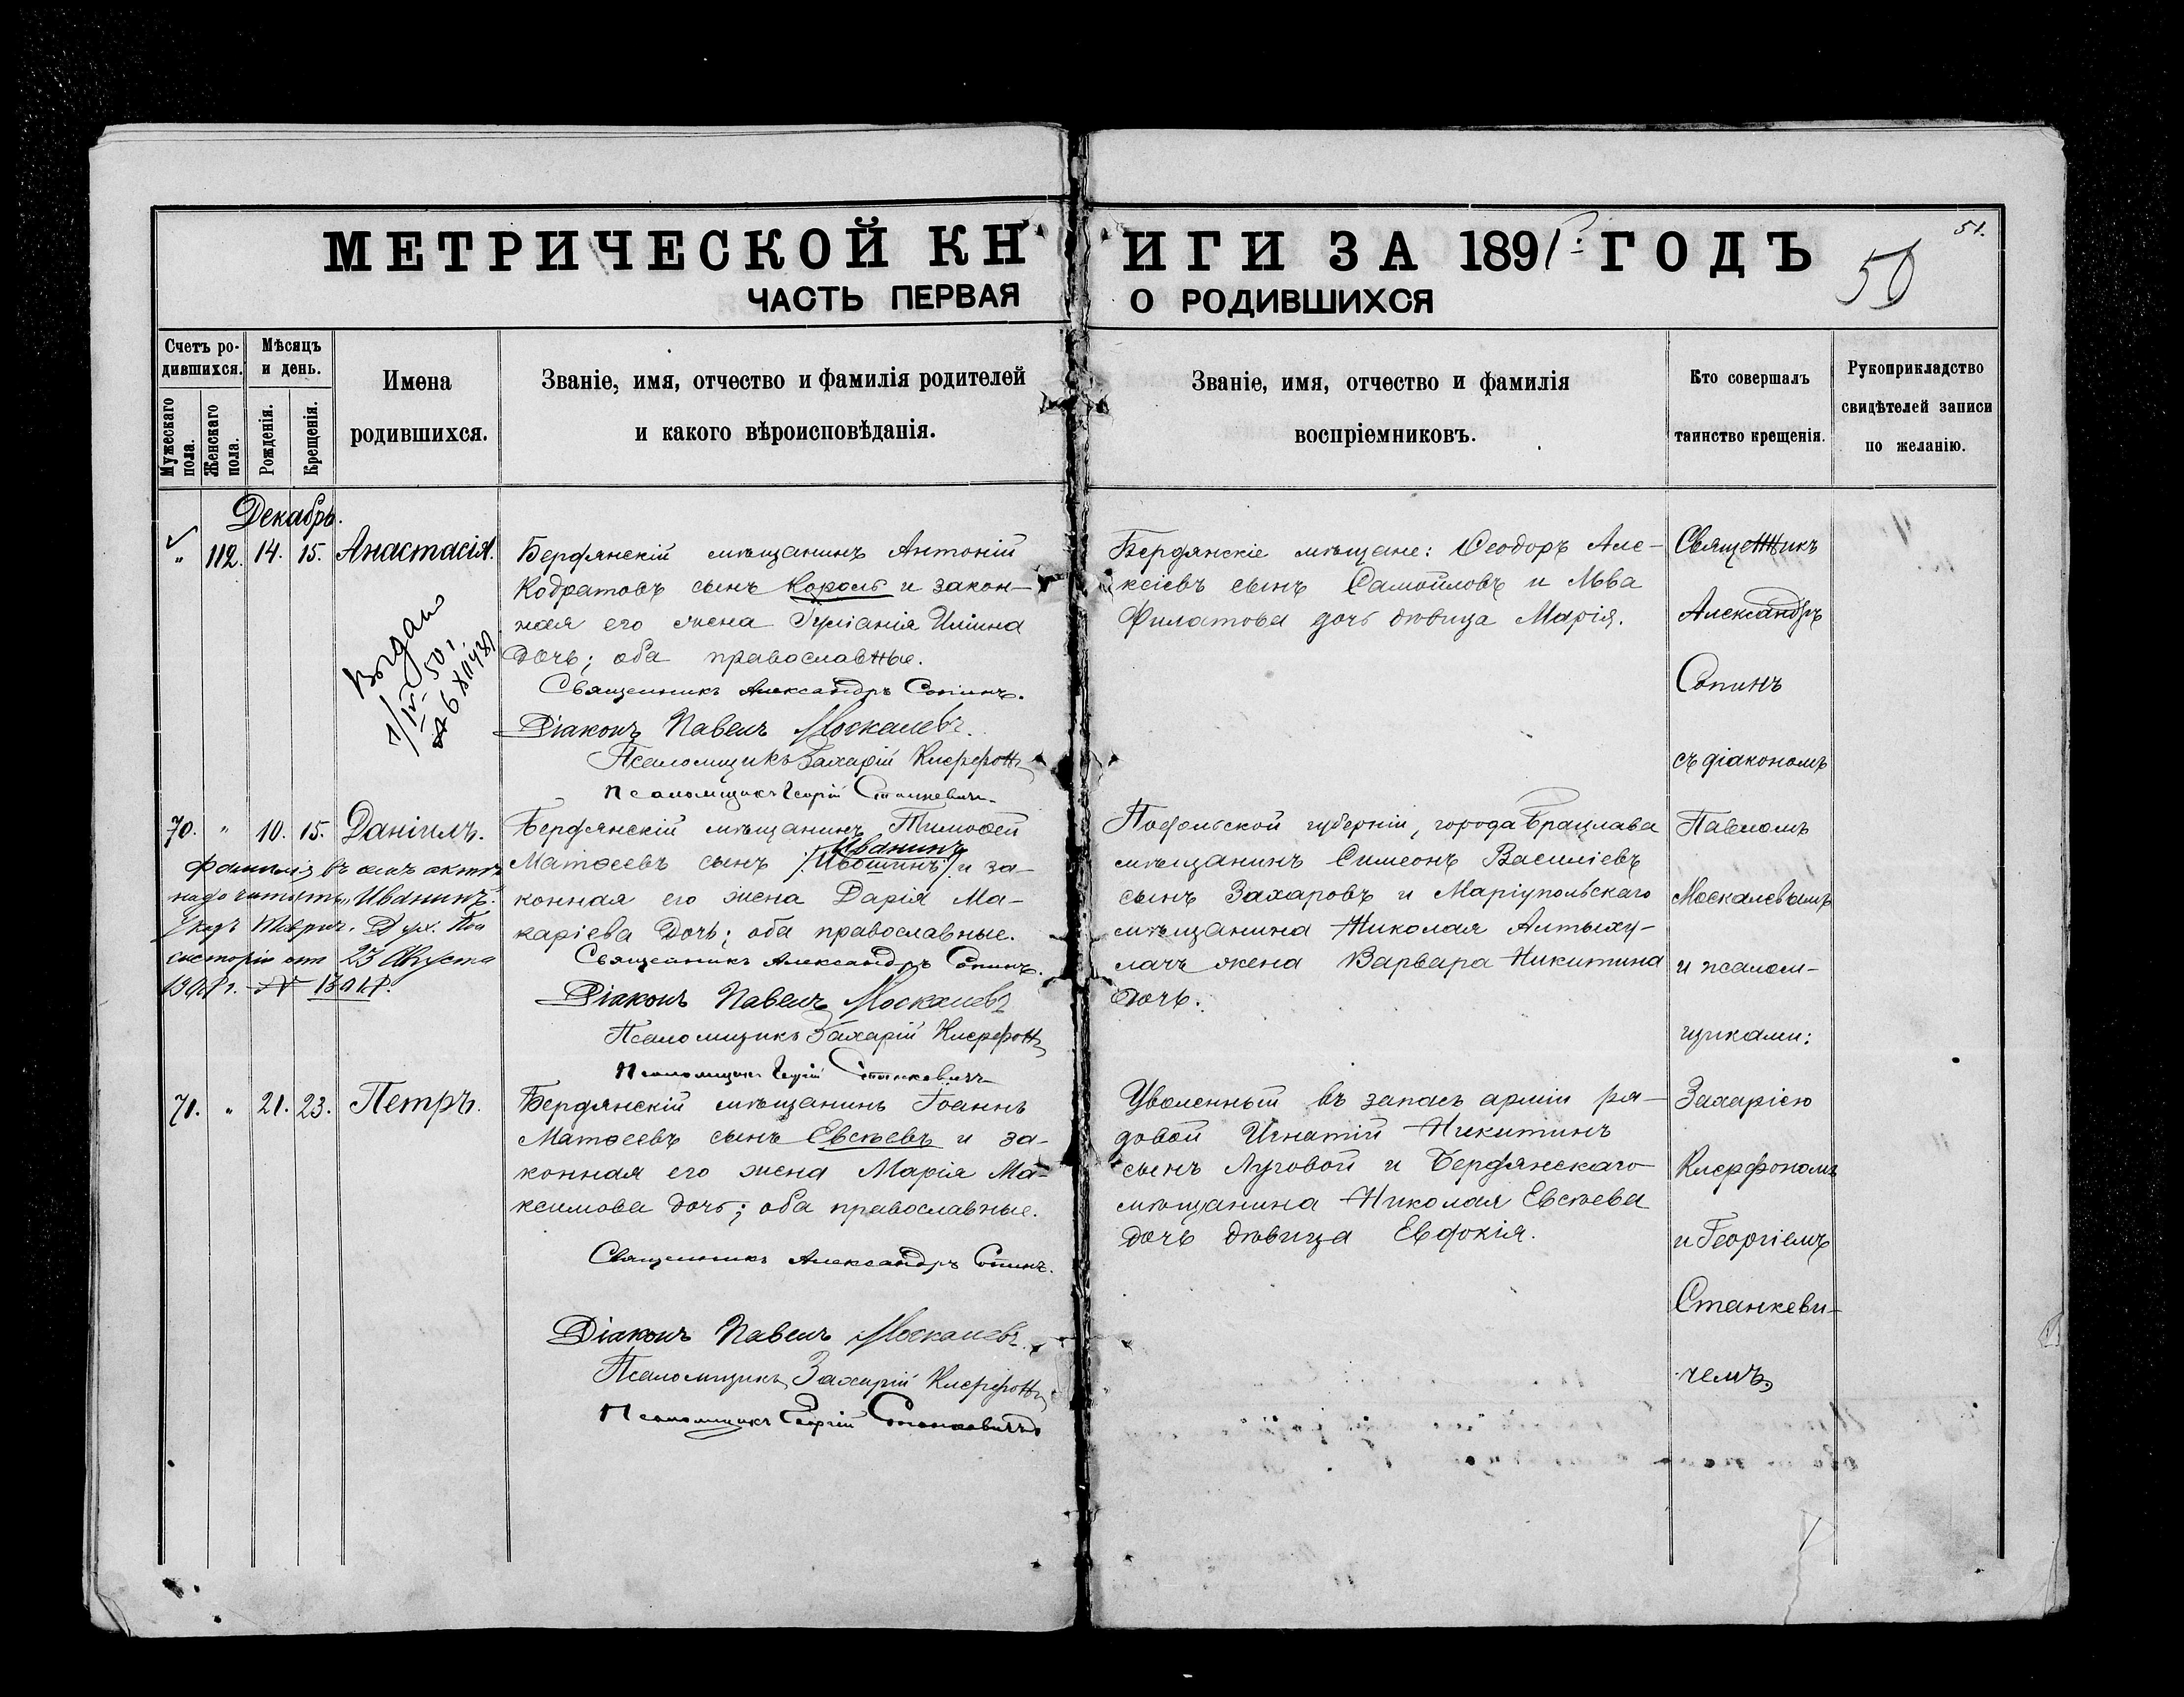 МЕТРИЧЕСКОЙ КНИГИ ЗА 1891 г. ГОДЪ
51.
50
ЧАСТЬ ПЕРВАЯ О РОДИВШИХСЯ
Счетъ родившихся.
Мужескаго пола.
Женскаго пола.
Мѣсяцъ и день.
Рожденія.
Крещенія.
Имена
родившихся.
Званіе, имя, отчество и фамилія родителей
и какого вѣроисповѣданія.
Званіе, имя, отчество и фамилія
воспріемниковъ.
Кто совершалъ
таинство крещенія.
Рукоприкладство
свидѣтелей записи
по желанію.
Декабрь.
" 112. 14. 15. Анастасія.
Бердянскій мѣщанинъ Антоній
Кодратовъ сынъ Король и закон-
ная его жена Іуліанія Иліина
дочь; оба православные.
Священникъ Александръ Сопинъ.
Діаконъ Павелъ Москалевъ.
Псаломщикъ Захарій Ксерфонъ
Псаломщикъ Георгій Станкевичъ
Выдано
1/IV 50 г.
Бердянскіе мѣщане: Ѳеодоръ Але-
ксіевъ сынъ Самойловъ и Льва
Филатова дочь дѣвица Марія.
70. " 10. 15. Даніилъ.
Фамилія въ семъ актѣ
надо читать "Иванинъ".
Указъ Таврич. Дух. Кон
систоріи отъ 23 Августа
Бердянскій мѣщанинъ Тимофей
Иванинъ
Матѳеевъ сынъ /Ивошинъ/ и за-
конная его жена Дарія Ма-
каріева дочь; оба православные.
Священникъ Александръ Сопинъ.
Діаконъ Павелъ Москалевъ
Псаломщикъ Захарій Ксерфонъ
Псаломщикъ Георгій Станкевичъ
Подольской губерніи, города Брацлава
мѣщанинъ Симеонъ Василіевъ
сынъ Захаровъ и Маріупольскаго
мѣщанина Николая Алтыху-
лачъ жена Варвара Никитина
дочь.
71. " 21. 23. Петръ.
Бердянскій мѣщанинъ Іоаннъ
Матѳеевъ сынъ Евсѣевъ и за-
конная его жена Марія Ма-
ксимова дочь; оба православные.
Священникъ Александръ Сопинъ.
Діаконъ Павелъ Москалевъ.
Псаломщикъ Захарій Ксерфонъ
Псаломщикъ Георгій Станкевичъ
Уволенный въ запасъ арміи ря-
довой Игнатій Никитинъ
сынъ Луговой и Бердянскаго
мѣщанина Николая Евсѣева
дочь дѣвица Евдокія.
Священникъ
Александръ
Сопинъ
съ діакономъ
Павломъ
Москалевымъ
и псалом-
щиками:
Захаріею
Ксерфономъ
и Георгіемъ
Станкеви-
чемъ